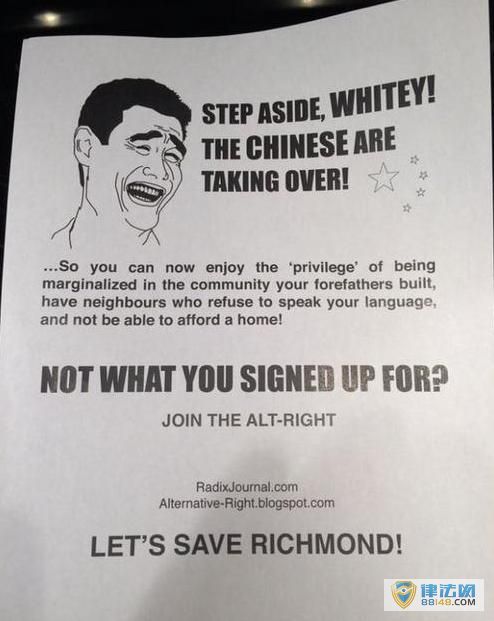 STEP ASIDE, WHITEY!
THE CHINESE ARE
TAKING OVER!
...So you can now enjoy the ‘privilege’ of being
marginalized in the community your forefathers built,
have neighbours who refuse to speak your language,
and not be able to afford a home!
NOT WHAT YOU SIGNED UP FOR?
JOIN THE ALT-RIGHT
RadixJournal.com
Alternative-Right.blogspot.com
LET’S SAVE RICHMOND!
律法网
88148.COM